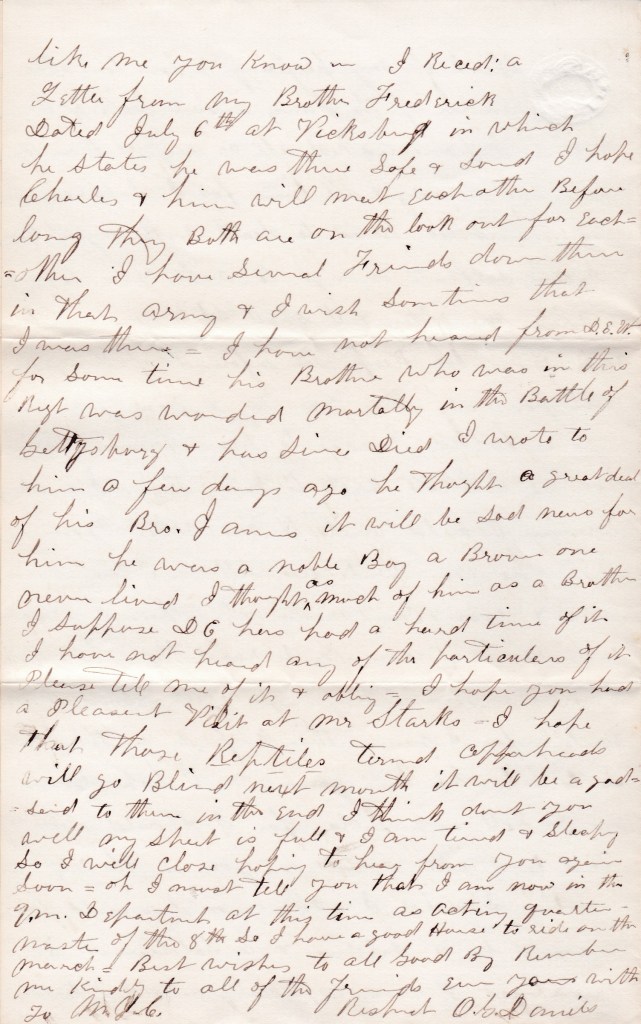 like me you Know = I Recd: a
Letter from my Brother Frederick
Dated July 6th at Vicksburg in which
he States he was there Safe & Sound I hope
Charles & him will meet Each other Before
long They Both are on the look out for Each=
=other I have Several Friends down there
in that army & I wish Sometimes that
I was there = I have not heard from D.E.W.
for Some time his Brother who was in this
Regt was wounded mortally in the Battle of
Gettysburg & has Since Died I wrote to
him a few days ago he thought a great deal
of his Bro. I it will be Sad news for
him he was a noble Boy a Braver one
never lived I thought as much of him as a Brother
I Suppose D C has had a hard time of it
I have not heard any of the particulars of it
Please tell me of it & oblige = I hope you had
a Pleasent Visit at Mr Starks = I hope
that those Reptiles termd Copperheads
will go Blind next month it will be a god=
=send to them in the End I think dont you
well my Sheet is full & I am tired & Sleepy
So I will Close hoping to hear from you again
Soon = oh I must tell you that I am now in the
Q.M. Department at this time as acting quarter-
master of the 8th So I have a good Horse to ride on the
march = Best wishes to all Good By Remember
me Kindly to all of the friends Ever yours with
To M. Respect O.G. Daniels